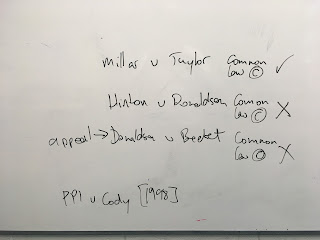 Millar v Taylor Common Law © ✓
Hinton v Donaldson Common Law © X
appeal → Donaldson v Becket Common Law © X
PPI v Cody [1998]